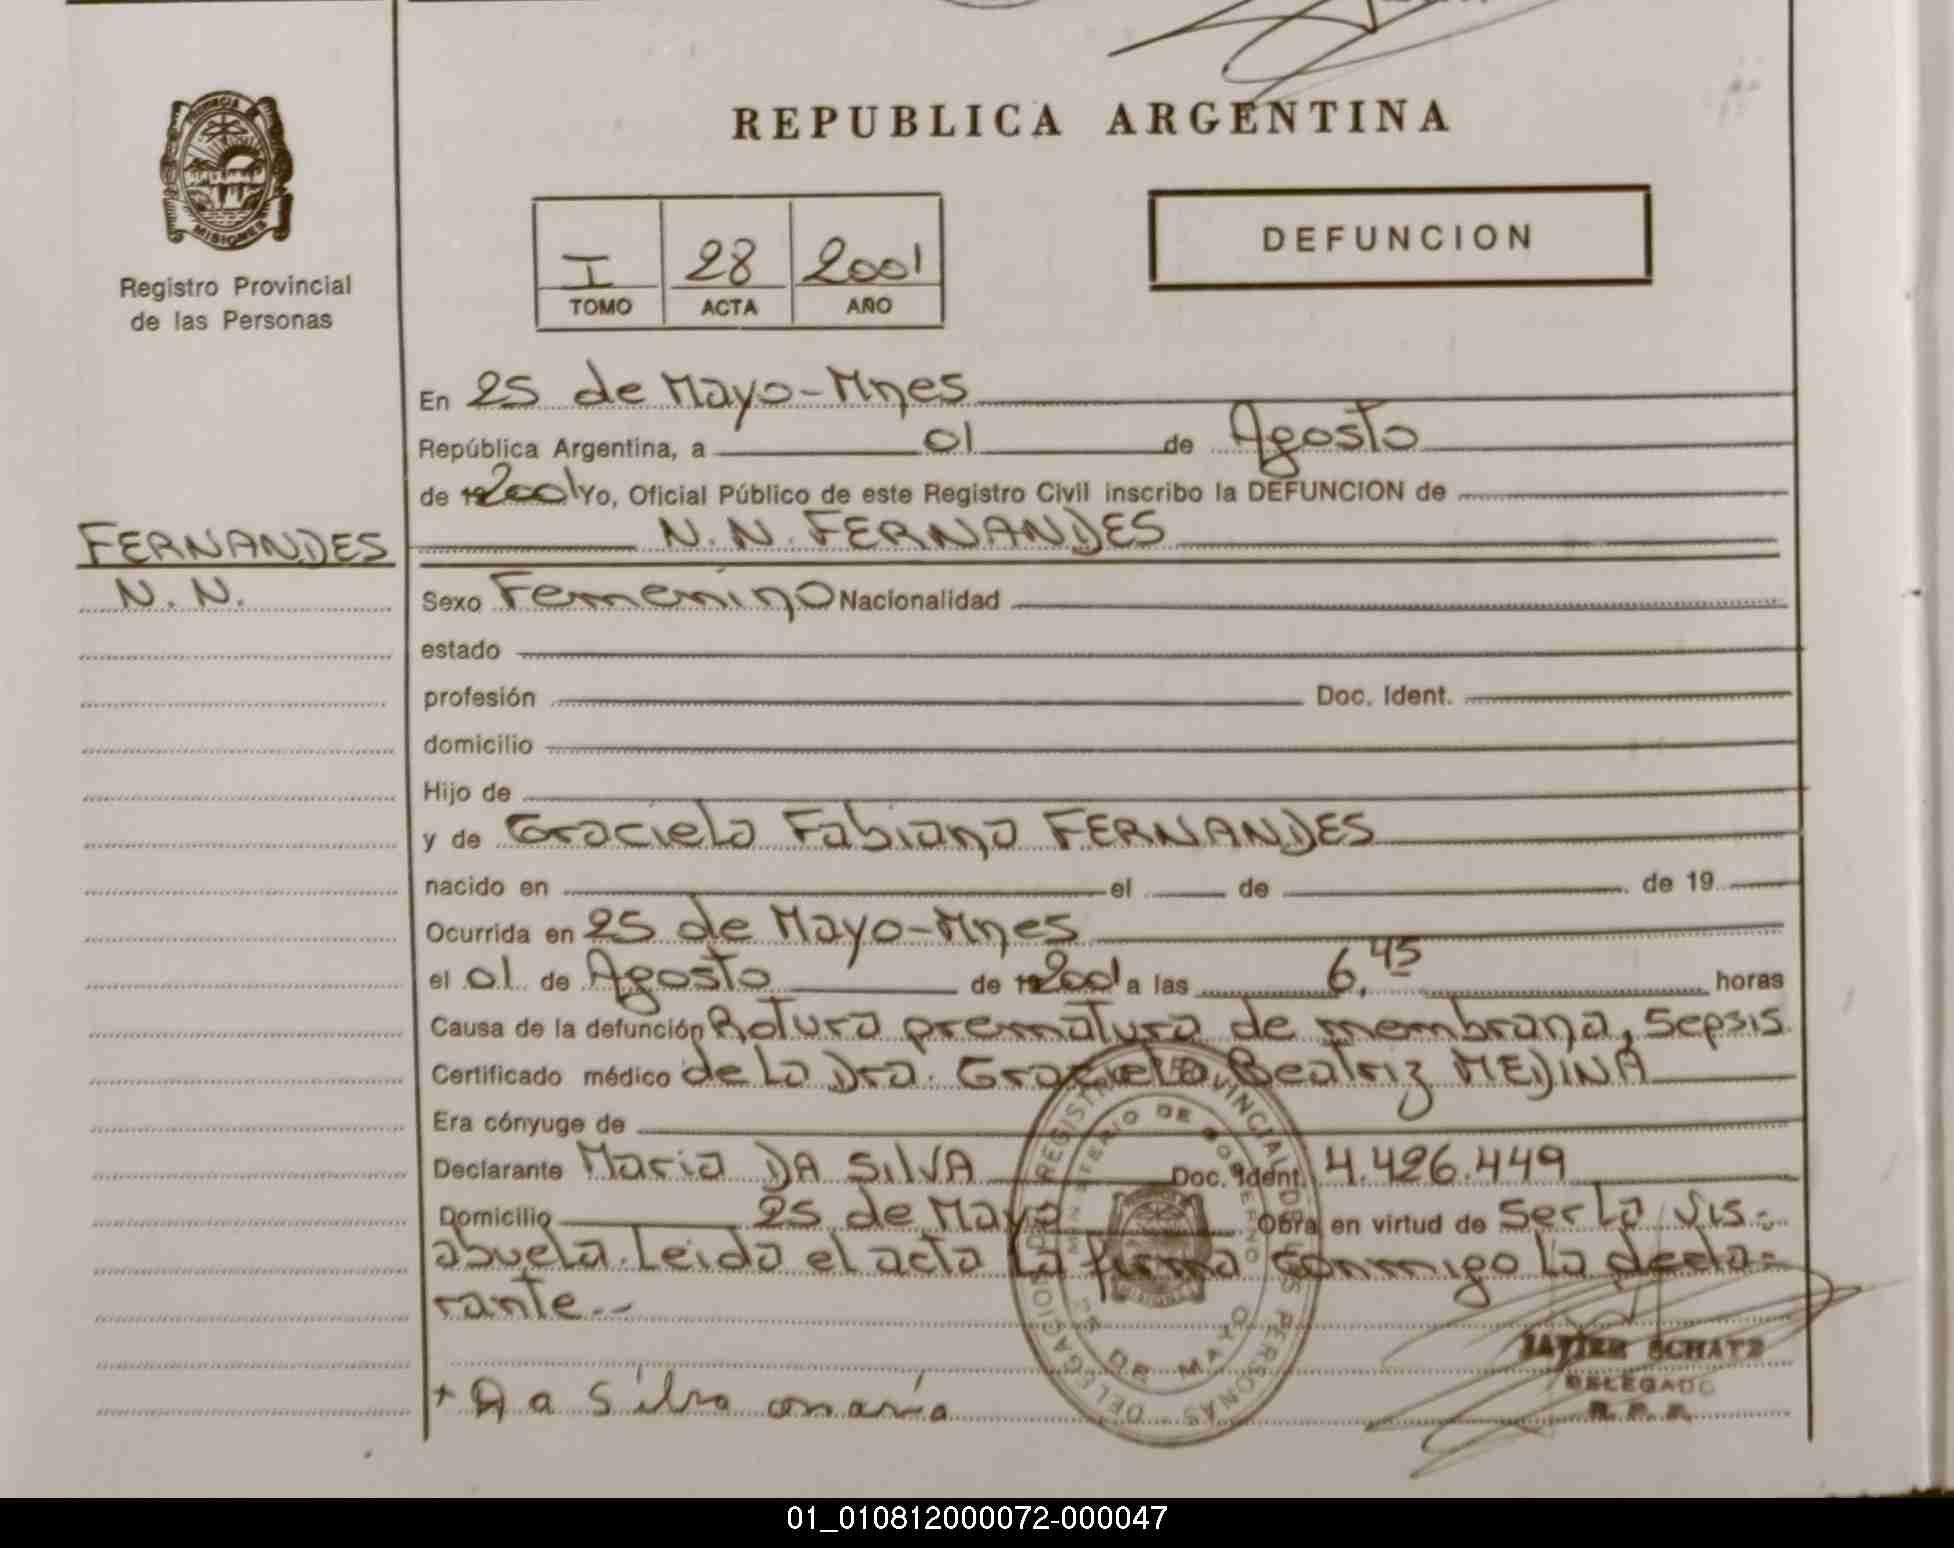 REPUBLICA ARGENTINA
PROVINCIA
MISIONES
Registro Provincial
de las Personas
I 28 2001
TOMO ACTA AÑO
DEFUNCION
En 25 de Mayo-Mnes
República Argentina, a 01 de Agosto
de 19 2001 Yo, Oficial Público de este Registro Civil inscribo la DEFUNCION de
FERNANDES
N. N.
N. N. FERNANDES
Sexo Femenino Nacionalidad
estado
profesión Doc. Ident.
domicilio
Hijo de
y de Graciela Fabiana FERNANDES
nacido en el de de 19
Ocurrida en 25 de Mayo-Mnes
el 01 de Agosto de 19 2001 a las 6,45 horas
Causa de la defunción Rotura prematura de membrana, Sepsis.
Certificado médico de la Dra. Graciela Beatriz MEDINA
Era cónyuge de
Declarante Maria DA SILVA Doc. Ident. 4.426.449
Domicilio 25 de Mayo Obra en virtud de Ser la vis-
abuela. Leida el acta la firma conmigo la decla-
rante.-
+ Da Silva maría
REGISTRO PROVINCIAL DE LAS PERSONAS DELEGACION
MINISTERIO DE GOBIERNO
25 DE MAYO
JAVIER SCHATZ
DELEGADO
R. P. P.
01_010812000072-000047